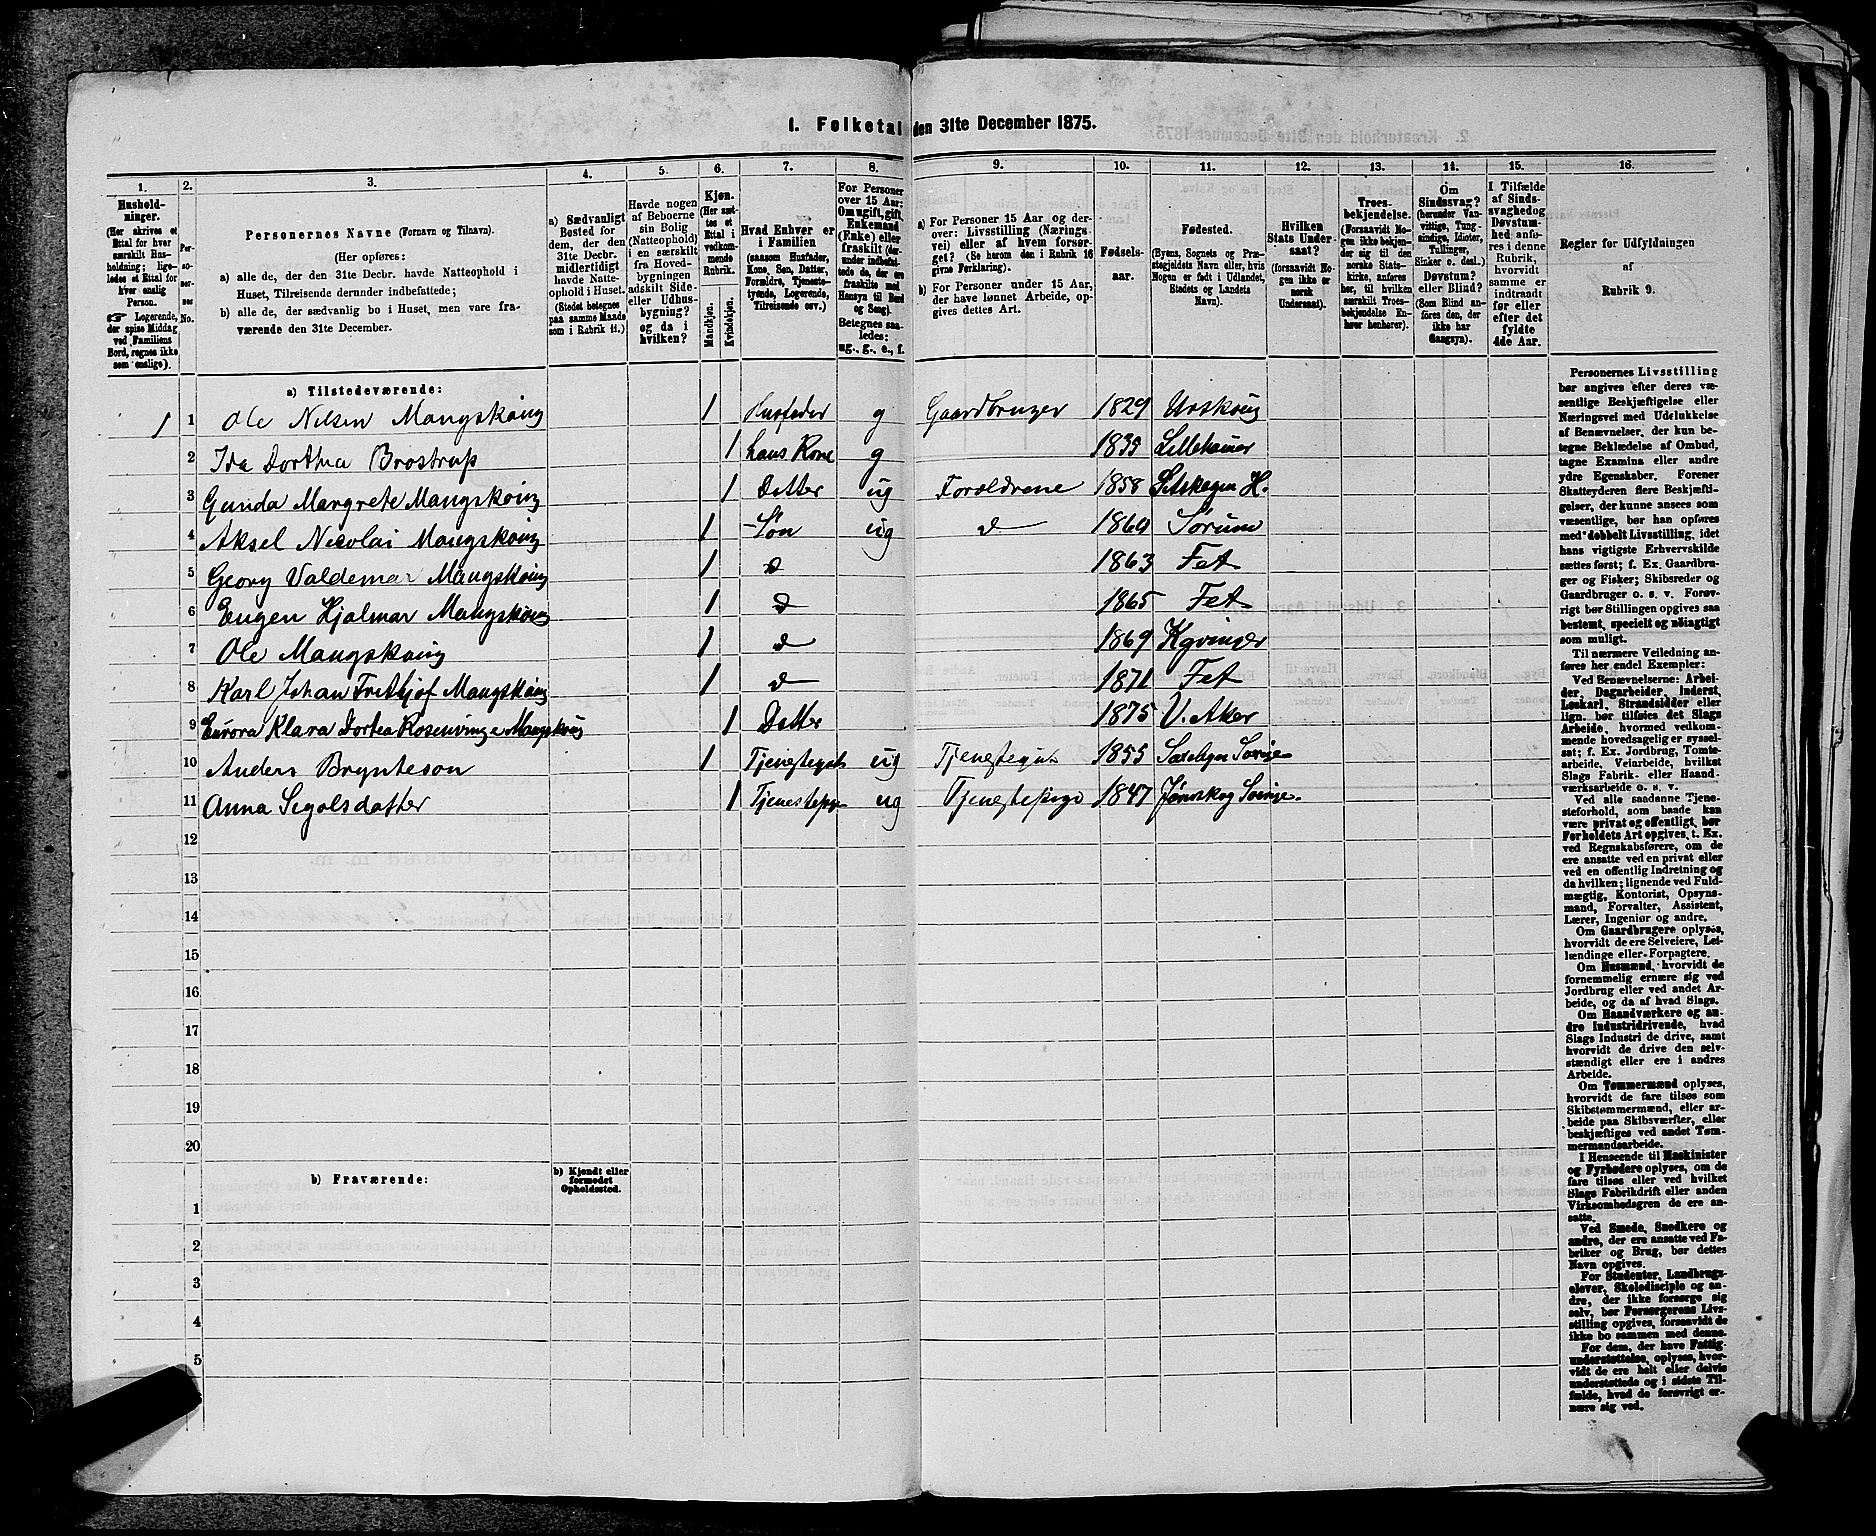 1. Folketal den 31te December 1875.
1. 2. 3. 4. 5. 6. 7. 8. 9. 10. 11. 12. 13. 14. 15. 16.
Hushold-
ninger.
(Her skrives et
Ettal for hver
særskilt Hus-
holdning; lige-
ledes et Ettal for
hver enslig
Person.
☞ Logerende,
der spise Middag
ved Familiens
Bord, regnes ikke
som enslige).
Per-
so-
ner-
nes
No.
Personernes Navne (Fornavn og Tilnavn).
(Her opføres:
a) alle de, der den 31te Decbr. havde Natteophold i
Huset, Tilreisende derunder indbefattede;
b) alle de, der sædvanlig bo i Huset, men vare fra-
værende den 31te December.
a) Sædvanligt
Bosted for
dem, der den
31te Decbr.
midlertidigt
havde Natte-
ophold i Huset.
(Stedet betegnes
paa samme Maade
som i Rubrik 11.)
Havde nogen
af Beboerne
sin Bolig
(Natteophold)
i en særskilt
fra Hoved-
bygningen
adskilt Side-
eller Udhus-
bygning?
og da i
hvilken?
Kjøn.
(Her sæt-
tes et
Ettal i
vedkom-
mende
Rubrik.
Mandkjøn.
Kvindekjøn.
Hvad Enhver er
i Familien
(saasom Husfader,
Kone, Søn, Datter,
Forældre, Tjeneste-
tyende, Logerende,
Tilreisende osv.)
For Personer
over 15 Aar:
Om ugift, gift,
Enkemand
(Enke) eller
fraskilt (der-
under indbefat-
tede de, der ere
fraskilte med
Hensyn til Bord
og Seng).
Betegnes saa-
ledes:
ug., g., e., f.
a) For Personer 15 Aar og der-
over: Livsstilling (Nærings-
vei) eller af hvem forsør-
get? (Se herom den i Rubrik 16
givne Forklaring).
b) For Personer under 15 Aar,
der have lønnet Arbeide, op-
gives dettes Art.
Fødsels-
aar.
Fødested.
(Byens, Sognets og Præ-
stegjeldets Navn eller, hvis
Nogen er født i Udlandet,
Stedets og Landets
Navn).
Hvilken
Stats Under-
saat?
(forsaavidt No-
gen ikke er
norsk
Undersaat).
Troes-
bekjendelse.
(Forsaavidt No-
gen ikke bekjen-
der sig til den
norske Stats-
kirke, anføres
her, til hvilken
særskilt Troes-
bekjendelse En-
hver henhører).
Om
Sindssvag?
(herunder Van-
vittige, Tung-
sindige, Idioter,
Tullinger,
Sinker o. desl.)
Døvstum?
eller Blind?
(Som Blind an-
føres den, der
ikke har
Gangsyn).
I Tilfælde
af Sinds-
svaghed og
Døvstum-
hed anfø-
res i denne
Rubrik,
hvorvidt
samme er
indtraadt
før eller
efter det
fyldte
4de Aar.
Regler for Udfyldningen
af
Rubrik 9.
a) Tilstedeværende:
1 1 Ole Nilsen Mangskoug 1 Husfader g Gaardbruger 1829 Urskoug
2 Ida Dorthea Brostrup 1 hans Kone g 1835 Lillehamer
3 Gunda Margrete Mangskoug 1 Datter ug Forældrene 1858 Setskogen H.
4 Aksel Nicolai Mangskoug 1 Søn ug d 1860 Sørum
5 Georg Valdemar Mangskoug 1 d 1863 Fet
6 Eugen Hjalmar Mangskoug 1 d 1865 Fet
7 Ole Mangskoug 1 d 1869 Kgvinger
8 Karl Johan Frithjof Mangskoug 1 d 1871 Fet
9 Eurora Klara Dortea Rosenvinge Mangskoug 1 Datter 1875 V. Aker
10 Anders Brynteson 1 Tjenestegut ug Tjenestegut 1855
11 Anna Segolsdatter 1 Tjenestepge ug Tjenestepige 1847 Jernskog
12
13
14
15
16
17
18
19
20
b) Fraværende:
b) Kjendt eller
formodet
Opholdssted.
1
2
3
4
5
Personernes Livsstilling
bør angives efter deres væ-
sentlige Beskjæftigelse eller
Næringsvei med Udelukkelse
af Benævnelser, der kun be-
tegne Beklædelse af Ombud,
tagne Examina eller andre
ydre Egenskaber. Forener
Skatteyderen flere Beskjæfti-
gelser, der kunne ansees som
væsentlige, bør han opføres
med dobbelt Livsstilling, idet
hans vigtigste Erhvervskilde
sættes først; f. Ex. Gaardbru-
ger og Fisker; Skibsreder og
Gaardbruger o. s. v. Forøv-
rigt bør Stillingen opgives saa
bestemt, specielt og nöiagtigt
som muligt.
Til nærmere Veiledning an-
føres her endel Exempler:
Ved Benævnelserne: Arbei-
der, Dagarbeider, Inderst,
Løskarl, Strandsidder eller
lign. bør tilføies det Slags
Arbeide, hvormed vedkom-
mende hovedsagelig er syssel-
sat; f. Ex. Jordbrug, Tomte-
arbeide, Veiarbeide, hvilket
Slags Fabrik- eller Haand-
værksarbeide o. s. v.
Ved alle saadanne Tjene-
steforhold, som baade kan
være privat og offentligt, bør
Forholdets Art opgives, t. Ex.
ved Regnskabsførere, om de
ere ansatte ved en privat eller
ved en offentlig Indretning og
da hvilken; lignende ved Fuld-
mægtig, Kontorist, Opsyns-
mand, Forvalter, Assistent,
Lærer, Ingeniør og andre.
Om Gaardbrugere oplyses,
hvorvidt de ere Selveiere, Lei-
lændinge eller Forpagtere.
Om Husmænd, hvorvidt de
fornemmelig ernære sig ved
Jordbrug eller ved andet Ar-
beide, og da af hvad Slags.
Om Haandværkere og an-
dre Industridrivende, hvad
Slags Industri de drive, samt
hvorvidt de drive den selv-
stændigt eller ere i andres
Arbeide.
Om Tømmermænd oplyses,
hvorvidt de fare tilsøs som
Skibstømmermænd, eller ar-
beide paa Skibsværfter, eller
beskjæftiges ved andet Tøm-
mermandsarbeide.
I Henseende til Maskinister
og Fyrbødere oplyses, om de
fare tilsøs eller ved hvilket
Slags Fabrikdrift eller anden
Virksomhedsgren de ere an-
satte.
Ved Smede, Snedkere og
andre, der ere ansatte ved Fa-
briker og Brug, bør dettes
Navn opgives.
For Studenter, Landbrugs-
elever, Skoledisciple og an-
dre, der ikke forsørge sig
selv, bør Forsørgerens Livs-
stilling opgives, forsaavidt de
ikke bo sammen med denne.
For dem, der have Fattig-
understøttelse, oplyses, hvor-
vidt de ere helt eller delvis
understøttede og i sidste Til-
fælde, hvad de forøvrigt er-
nære sig ved.